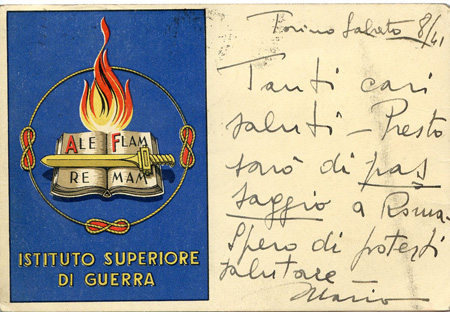 ALE FLAM
RE MAM
ISTITUTO SUPERIORE
DI GUERRA
Torino Sabato 8/41
Tanti cari
saluti - Presto
sarò di pas
saggio a Roma -
Spero di poterti
salutare
Mario